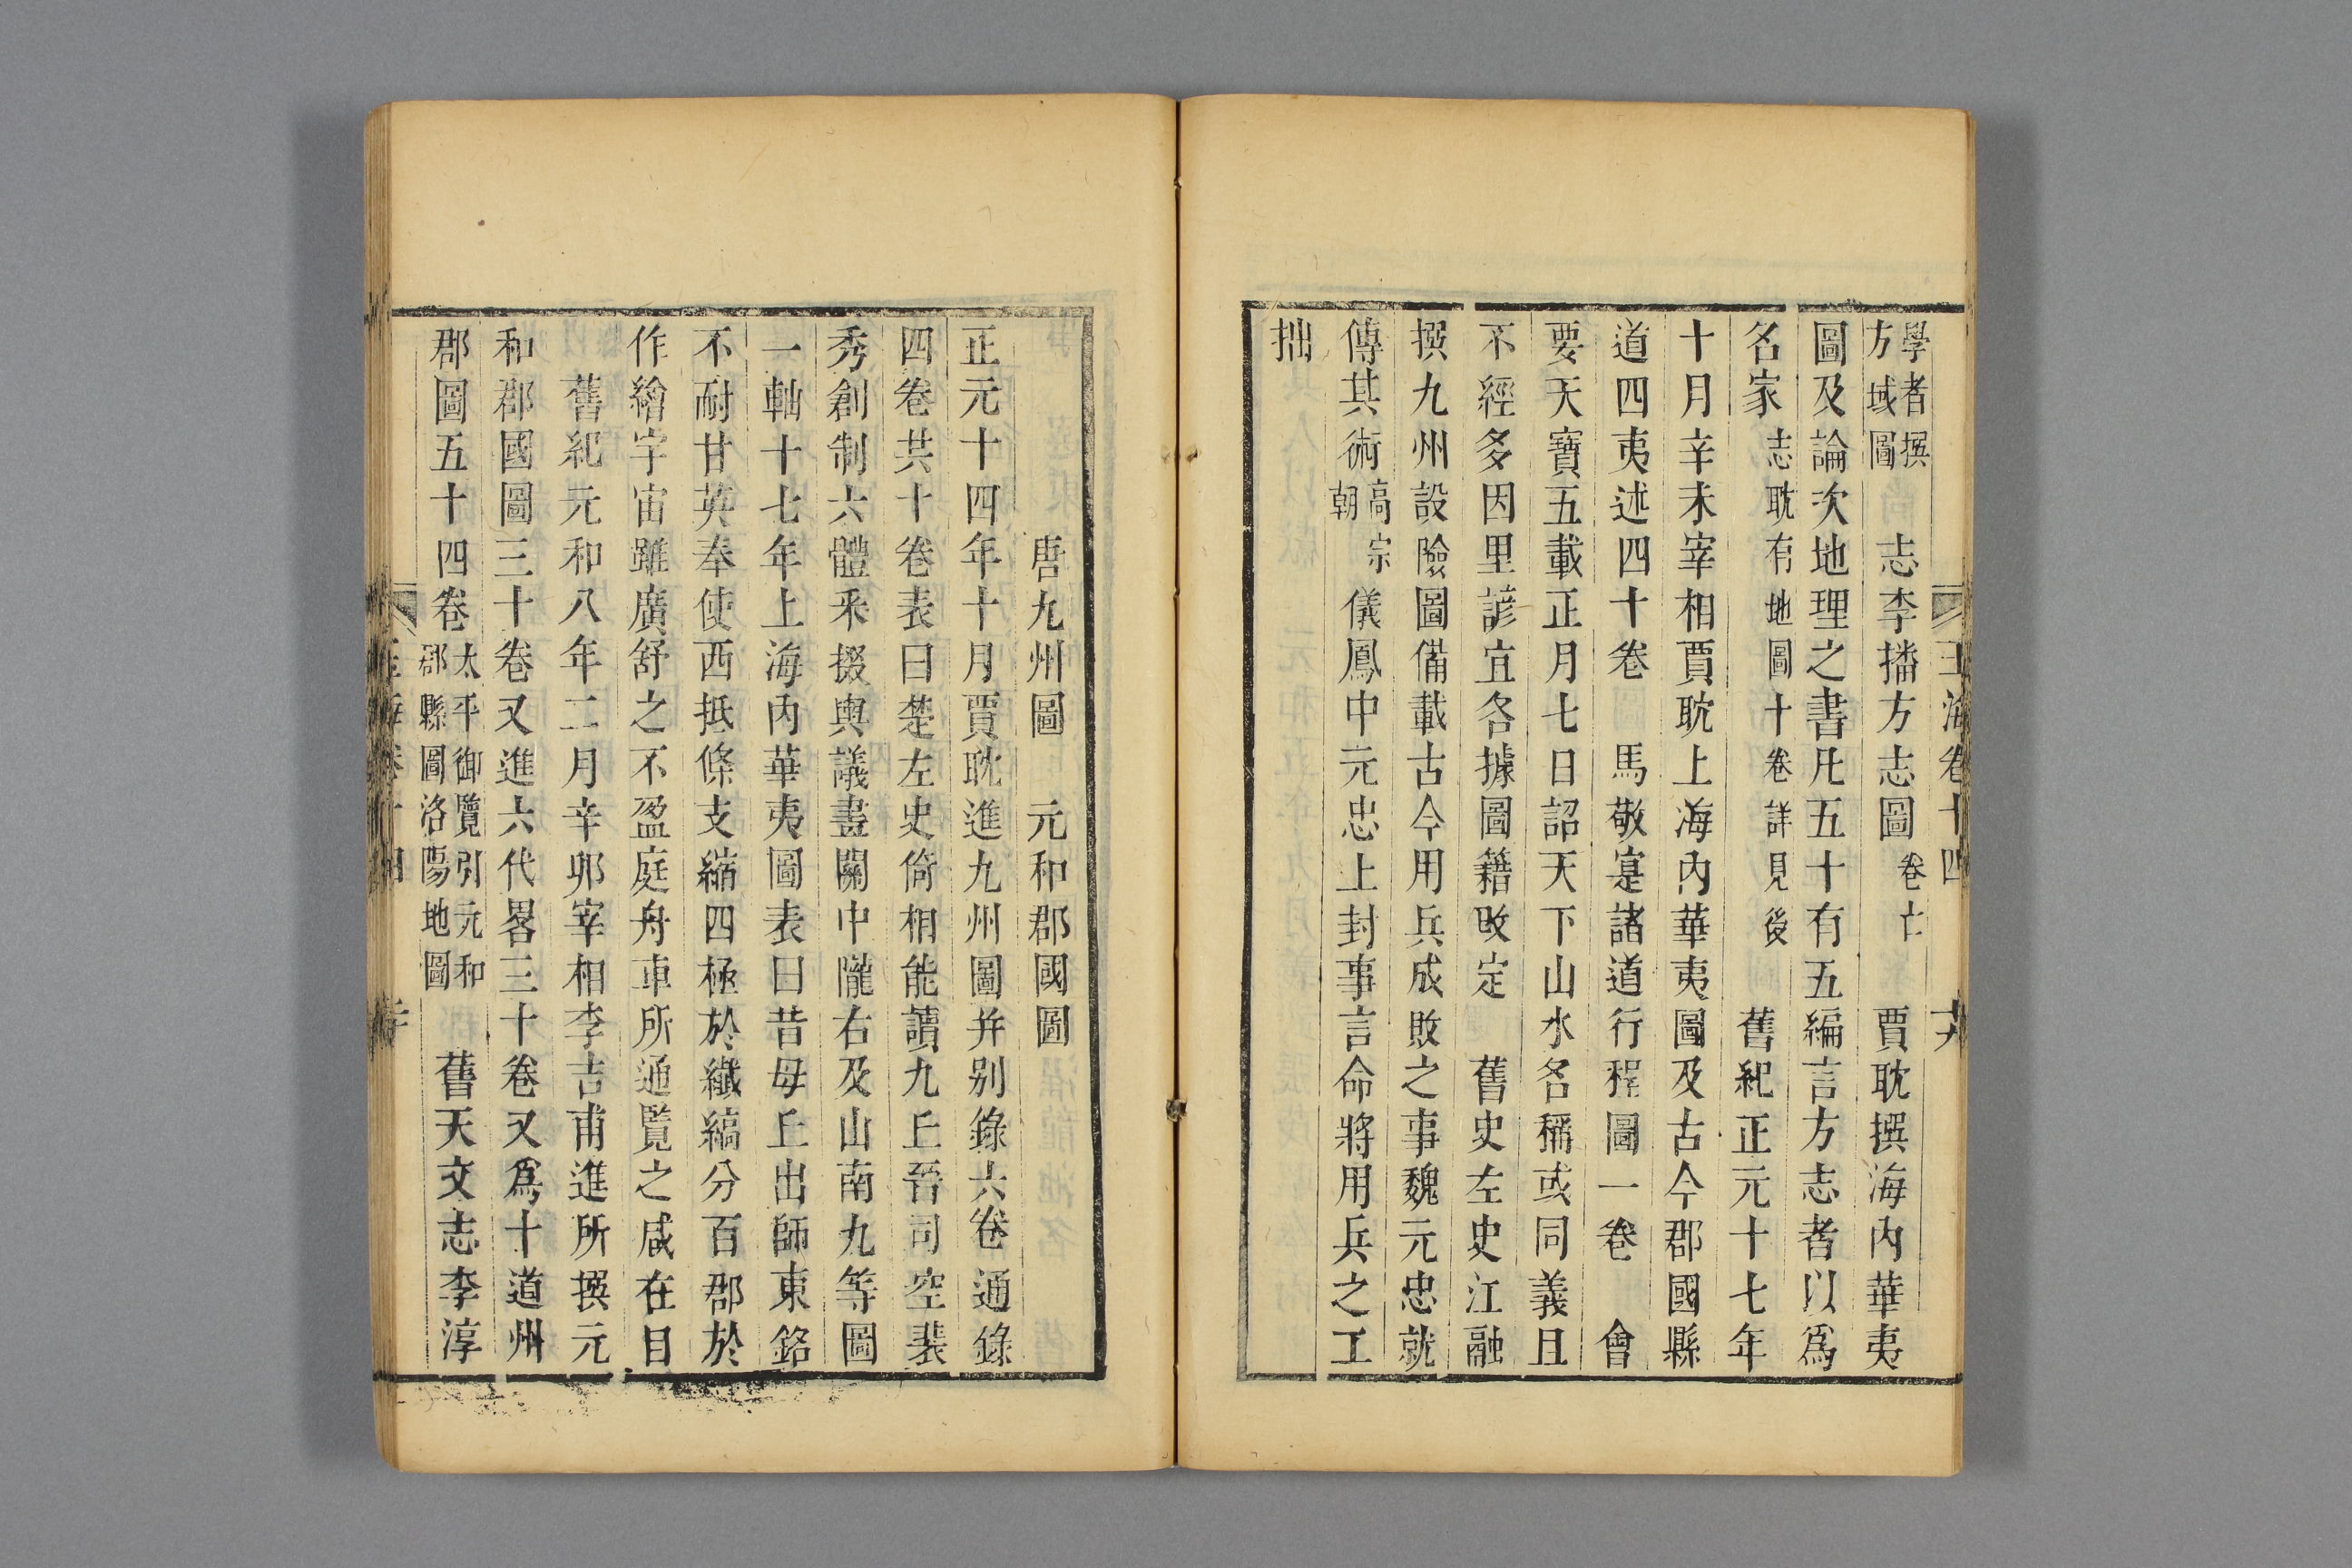 玉海卷十四 共
學者撰方域圖 志李播方志圖卷亡 賈耽撰海內華夷
圖及論次地理之書凡五十有五編言方志者以爲
名家志耽有地圖十卷詳見後 舊紀正元十七年
十月辛未宰相賈耽上海內華夷圖及古今郡國縣
道四夷述四十卷 馬敬寔諸道行程圖一卷 會
要天寶五載正月七日詔天下山水名稱或同義且
不經多因里諺宜各據圖籍改定 舊史左史江融
撰九州設險圖備載古今用兵成敗之事魏元忠就
傳其術高宗朝儀鳳中元忠上封事言命將用兵之工
拙
唐九州圖 元和郡國圖
正元十四年十月賈耽進九州圖并别錄六卷通錄
四卷共十卷表曰楚左史倚相能讀九丘晉司空裴
秀創制六體采掇輿議畫關中隴右及山南九等圖
一軸十七年上海內華夷圖表曰昔毋丘出師東銘
不耐甘英奉使西抵條支縮四極於纖縞分百郡於
作繪宇宙雖廣舒之不盈庭舟車所通覽之咸在目
舊紀元和八年二月辛卯宰相李吉甫進所撰元
和郡國圖三十卷又進六代畧三十卷又爲十道州
郡圖五十四卷太平御覽引元和郡縣圖洛陽地圖 舊天文志李淳